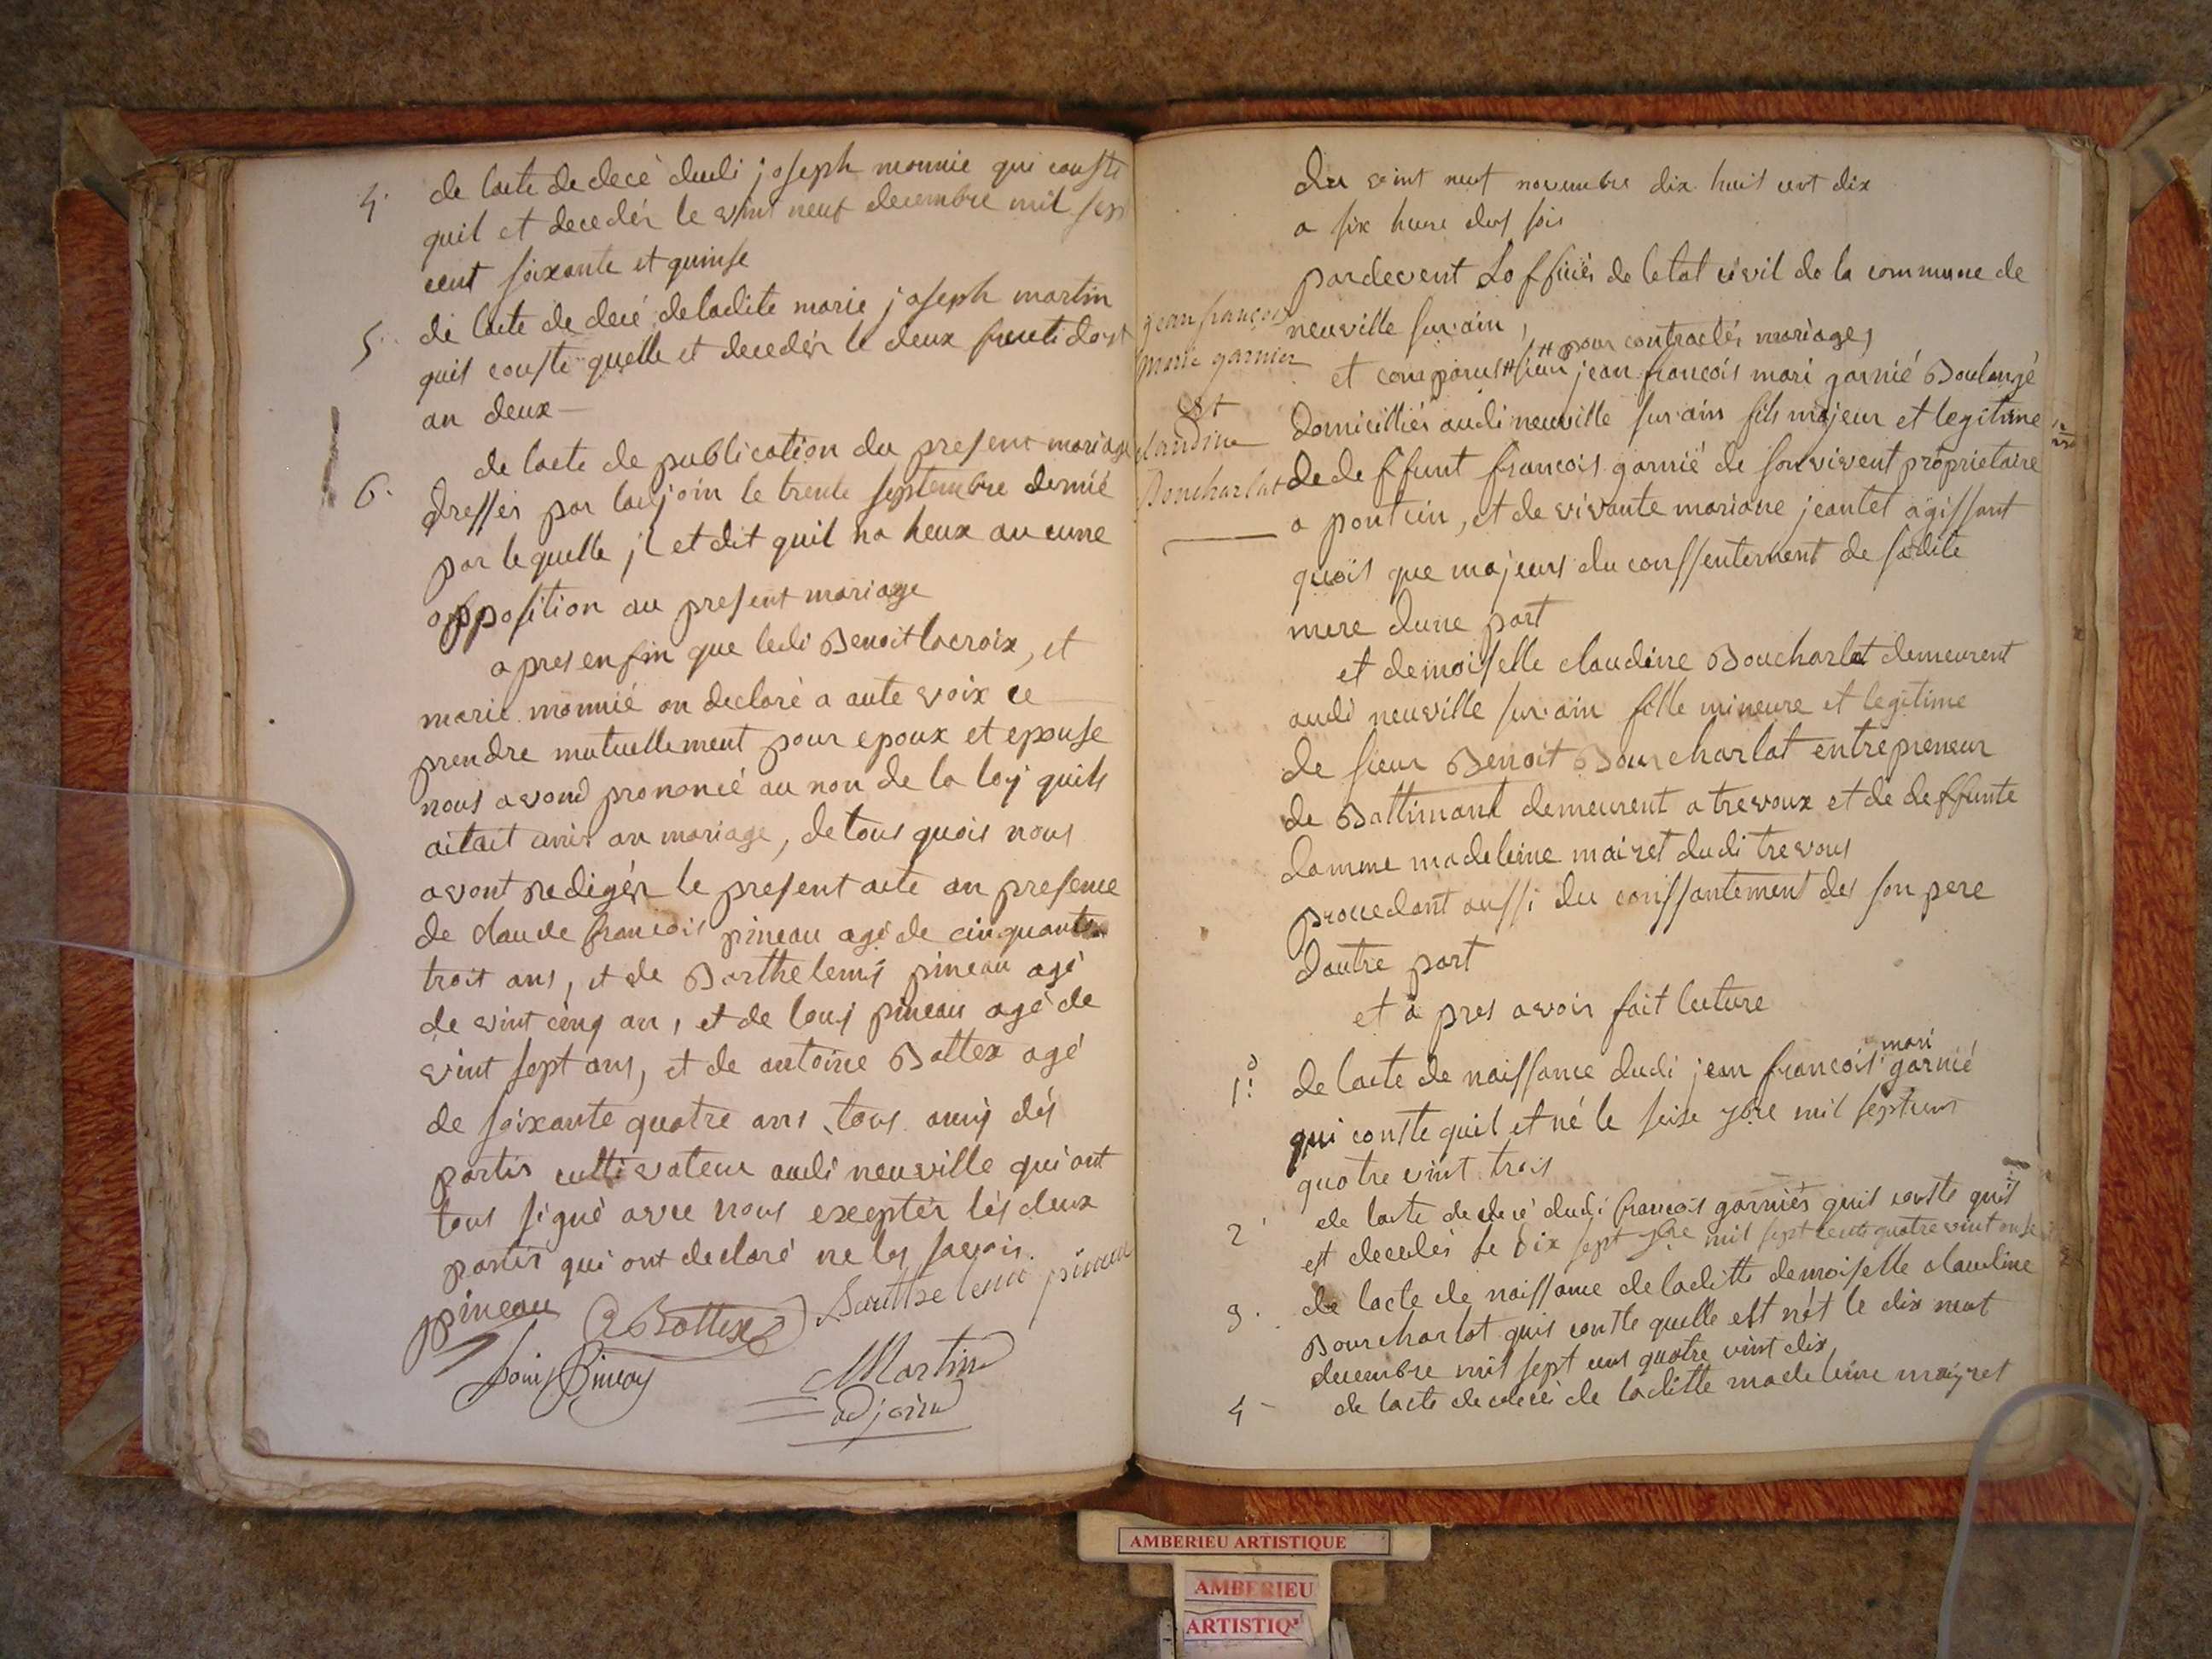 4. de lacte de decé dudi joseph monnié qui conste
quil et decedér le vint neuf decembre mil sep
cent soixante et quinse
5. de lacte de decé deladite marie joseph martin
quis conste quelle et decedér le deux fructidort
an deux
6. de lacte de publication du present mariage
dressér par ladjoin le trente septembre dernié
par lequelle jl et dit quil na heux au cune
opposition au present mariage
apres enfin que ledi Benoit lacroix, et
marie monnié on declaré a aute voix ce
prendre mutuellement pour epoux et epouse
nous avond prononcé au non de la loy quils
aitait unis an mariage, de tous quois nous
avont redigér le present acte an presence
de claude francois pineau agé de cinquante
trois ans, et de Barthelemy pineau agé
de vint cinq an, et de louis pineau agé de
vint sept ans, et de antoine Battex agé
de soixante quatre ans, tous amis dés
partis cultivateur audi neuville qui ont
tous signé avec nous exeptér lés deux
partis qui ont declaré ne las savoir.
pineau Barthelemi pineau
Louis Pineau Martin
adjoin
du vint neuf novembre dix huit cent dix
a six heure dus soir
pardevent Lofficiér de letat civil de la commune de
jean françois
marie garnier
et
claudine
Boucharlat
neuville sur ain,
# pour contractér mariage,
et comparus # sieur jean francois mari garnié Boulangé
domicilliér audi neuville sur ain fils majeur et legitime
de deffunt francois garnié de son vivent proprietaire
a pontcin, et de vivante mariane jeantet agissant
quois que majeurs du conssentement de sadite
mere dune part
et demoiselle claudine Boucharlat demeurent
audi neuville sur ain fille mineure et legitime
de sieur Benoit Bourcharlat entrepreneur
de Battimant demeurent a trevoux et de deffunte
damme madeleine mairet dudi trevous
procedant aussi du conssantement des son pere
dautre part
et a pres avoir fait lecture
mari
1.° de lacte de naissance dudi jean francois garnié
qui conste quil et né le seise 7bre mil septcent
quatre vint trois
2. de lacte de decé dudi francois garniér quis conste quil
est decedér le dix sept mil sept cent quatre vint onse
3. de lacte de naissance de laditte demoiselle claudine
Bourcharlat quis conste quelle est nét le dix neuf
decembre mil sept cent quatre vint dix
4 de lacte de decé de laditte madeleine mayret
AMBERIEU ARTISTIQUE
AMBERIEU
ARTISTIQ